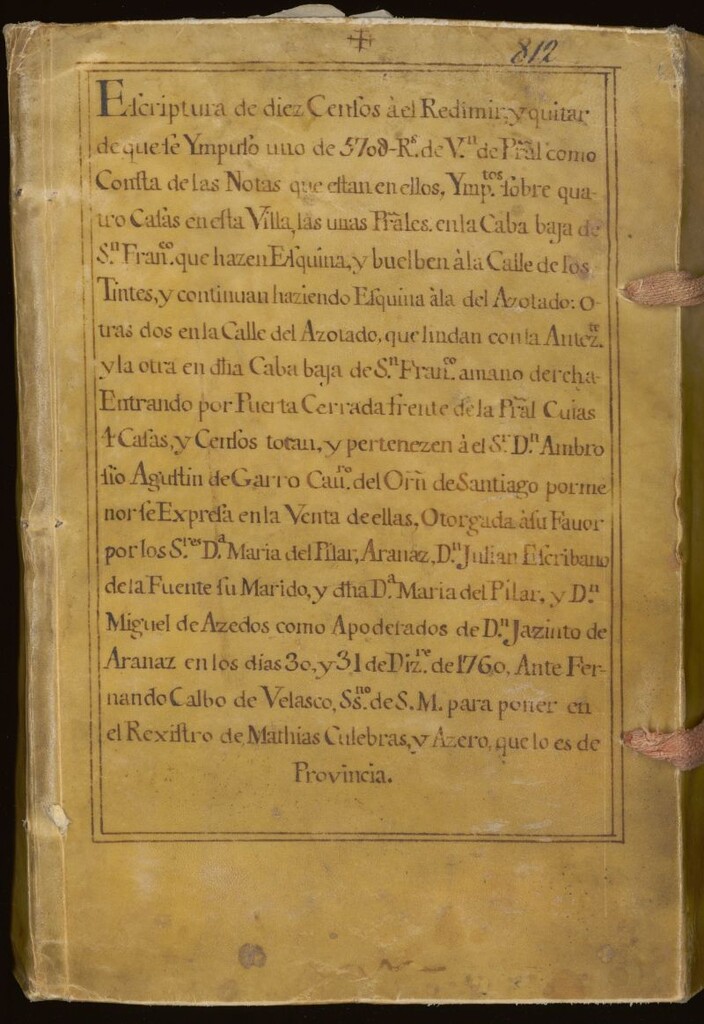 +
812
Escriptura de diez Censos àel Redimir, y quitar
de que se Ympuso uno de 5708-R.s de V.n de Prãl como
Consta de las Notas que estan en ellos, Ymp.tos sobre qua-
tro Casas en esta Villa, las unas Prãles. en la Caba baja de
S.n Fran.co que hazen Esquina, y buelben àla Calle de los
Tintes, y continuan haziendo Esquina àla del Azotado: O-
tras dos en la Calle del Azotado, que lindan con la Antez.te
y la otra en dha Caba baja de S.n Fran.co amano dercha-
Entrando por Puerta Cerrada frente de la Prãl Cuias
4 Casas, y Censos totan, y pertenezen à el S.r D.n Ambro
sio Agustin de Garro Cau.ro del Orñ de Santiago por me
nor se Expresa en la Venta de ellas, Otorgada àsu Favor
por los S.res D.a Maria del Pilar, Aranaz, D.n Julian Escribano
de la Fuente su Marido, y dha D.a Maria del Pilar, y D.n
Miguel de Azedos como Apoderados de D.n Jazinto de
Aranaz en los días 30, y 31 de Diz.re de 1760, Ante Fer-
nando Calbo de Velasco, Ss.no de S. M. para poner en
el Rexistro de Mathias Culebras, y Azero, que lo es de
Provincia.